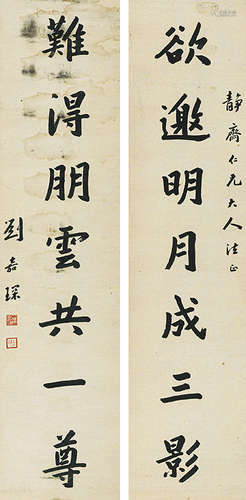 靜齋仁兄大人法正
欲邀明月成三影
難得朋雲共一尊
劉嘉琛